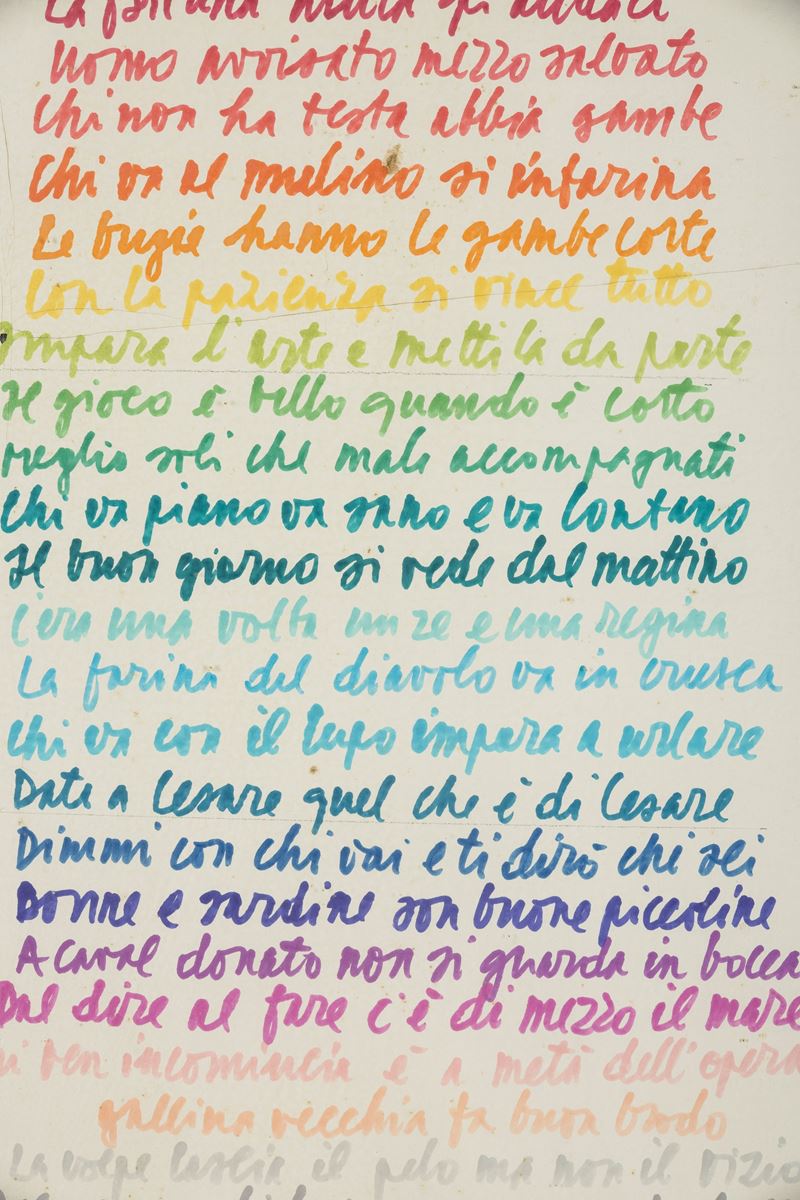 La fortuna aiuta gli audaci
Uomo avvisato mezzo salvato
Chi non ha testa abbia gambe
Chi va al mulino si infarina
Le bugie hanno le gambe corte
Con la pazienza si vince tutto
Impara l'arte e mettila da parte
Il gioco è bello quando è corto
meglio soli che male accompagnati
Chi va piano va sano e va lontano
Il buon giorno si vede dal mattino
C'era una volta un re e una regina
La farina del diavolo va in crusca
Chi va con il lupo impara a urlare
Date a Cesare quel che è di Cesare
Dimmi con chi vai e ti dirò chi sei
Donne e sardine son buone piccoline
A caval donato non si guarda in bocca
Dal dire al fare c'è di mezzo il mare
hi ben incomincia è a metà dell'opera
gallina vecchia fa buon brodo
La volpe lascia il pelo ma non il vizio